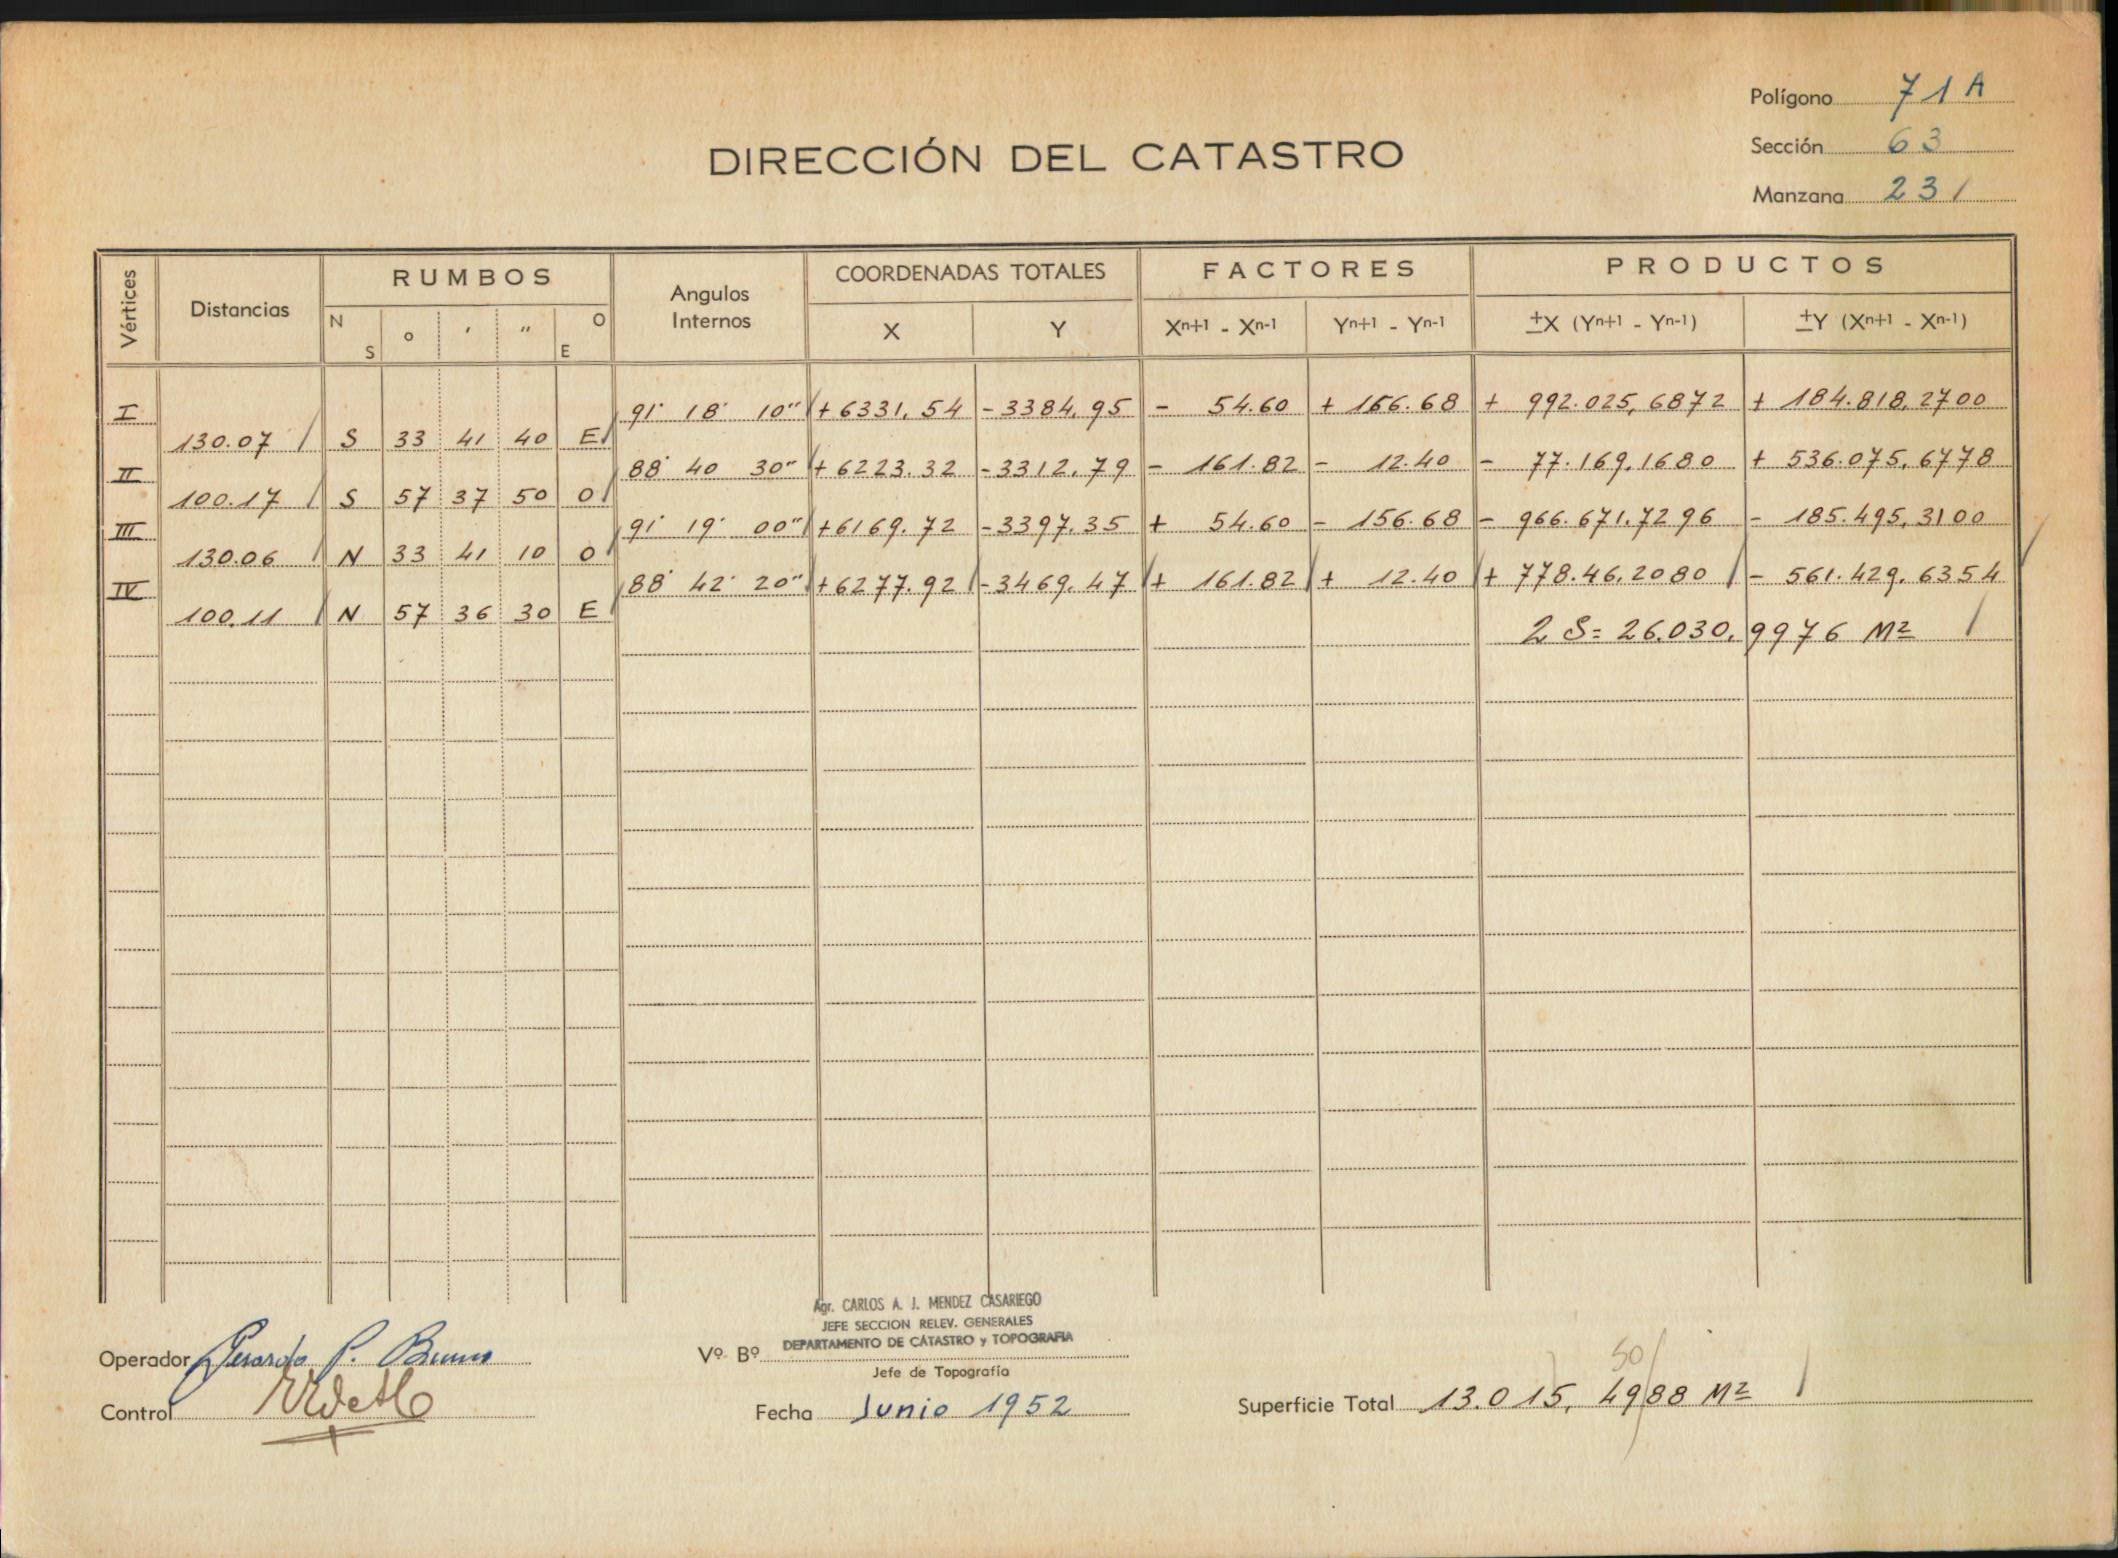 Polígono 71A
Sección 63
Manzana 231
DIRECCIÓN DEL CATASTRO
Vértices Distancias RUMBOS Angulos Internos COORDENADAS TOTALES FACTORES PRODUCTOS
N S o ' " O E X Y Xn+1 - Xn-1 Yn+1 - Yn-1 ±X (Yn+1 - Yn-1) ±Y (Xn+1 - Xn-1)
I 91° 18' 10" +6331.54 -3384.95 - 54.60 + 156.68 + 992.025,6872 + 184.818,2700
130.07 S 33 41 40 E
II 88° 40 30" +6223.32 -3312.79 - 161.82 - 12.40 - 77.169,1680 + 536.075,6778
100.17 S 57 37 50 O
III 91° 19' 00" +6169.72 -3397.35 + 54.60 - 156.68 - 966.671,7296 - 185.495,3100
130.06 N 33 41 10 O
IV 88° 42' 20" +6277.92 -3469.47 + 161.82 + 12.40 + 778.46,2080 - 561.429,6354
100.11 N 57 36 30 E
2 S= 26.030,9976 M2
Agr. CARLOS A. J. MENDEZ CASARIEGO
JEFE SECCION RELEV. GENERALES
DEPARTAMENTO DE CATASTRO y TOPOGRAFIA
Operador Gerardo P. Bruno
Vº Bº
Jefe de Topografía
Control
Fecha Junio 1952
50
Superficie Total 13.015,4988 M2